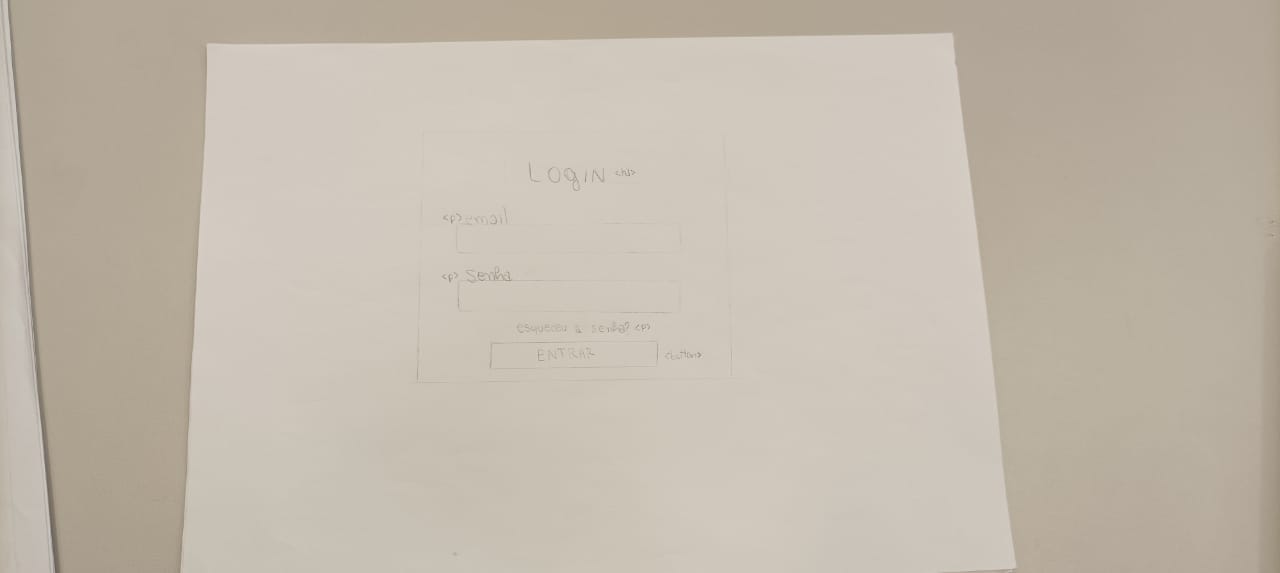 LOGIN <h1>
<p> email
<p> Senha
esqueceu a senha? <p>
ENTRAR <button>